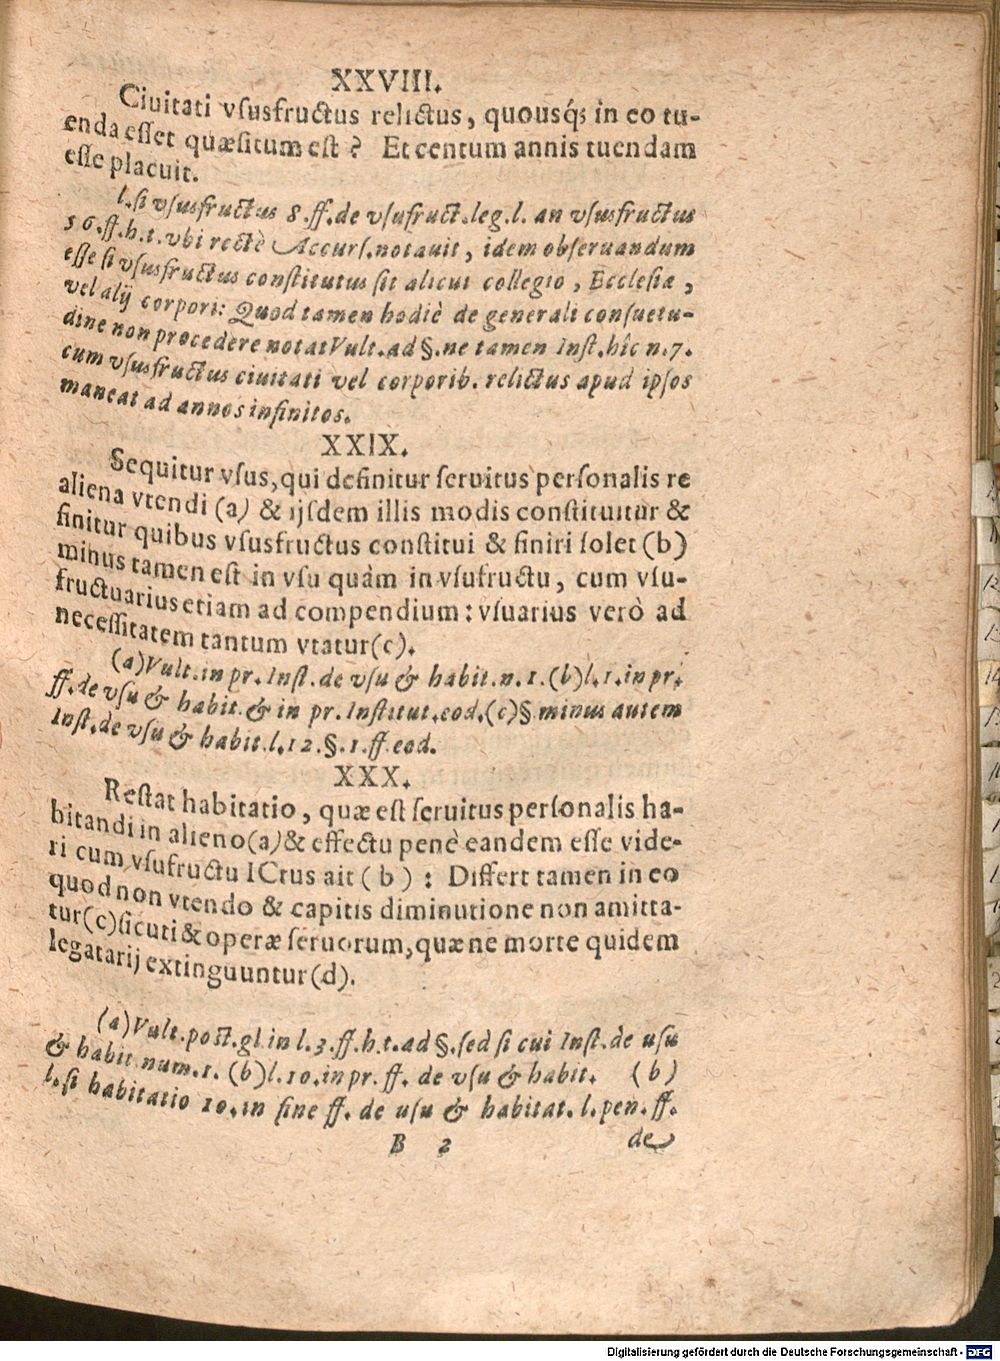 XXVIII.
Ciuitati vſusfructus relictus, quousq́; in eo tu-
enda eſſet quæſitum eſt? Et centum annis tuendam
eſſe placuit.
l. ſi vſusfructus 8. ff. de vſufruct. leg. l. an vſusfructus
56. ff. h. t. vbi rectè Accurſ. notauit, idem obſeruandum
eſſe ſi vſusfructus conſtitutus ſit alicui collegio, Eccleſiæ,
vel alij corpori: Quod tamen hodiè de generali conſuetu-
dine non procedere notat Vult. ad §. ne tamen Inſt. hîc n. 7.
cum vſusfructus ciuitati vel corporib. relictus apud ipſos
maneat ad annos infinitos.
XXIX.
Sequitur vſus, qui definitur ſeruitus perſonalis re
aliena vtendi (a) & ijſdem illis modis conſtituitur &
finitur quibus vſusfructus conſtitui & finiri ſolet (b)
minus tamen eſt in vſu quàm in vſufructu, cum vſu-
fructuarius etiam ad compendium: vſuarius verò ad
neceſſitatem tantum vtatur (c).
(a) Vult. in pr. Inſt. de vſu & habit. n. 1. (b) l. 1. in pr.
ff. de vſu & habit. & in pr. Inſtitut. eod. (c) § minus autem
Inſt. de vſu & habit. l. 12. §. 1. ff. eod.
XXX.
Reſtat habitatio, quæ eſt ſeruitus perſonalis ha-
bitandi in alieno (a) & effectu penè eandem eſſe vide-
ri cum vſufructu ICtus ait (b): Differt tamen in eo
quod non vtendo & capitis diminutione non amitta-
tur (c) ſicuti & operæ ſeruorum, quæ ne morte quidem
legatarij extinguuntur (d).
(a) Vult. poſt. gl. in l. 3. ff. h. t. ad §. ſed ſi cui Inſt. de uſu
& habit. num. 1. (b) l. 10. in pr. ff. de vſu & habit. (b)
l. ſi habitatio 10. in fine ff. de uſu & habitat. l. pen. ff.
B 2 de
Digitalisierung gefördert durch die Deutsche Forschungsgemeinschaft - DFG